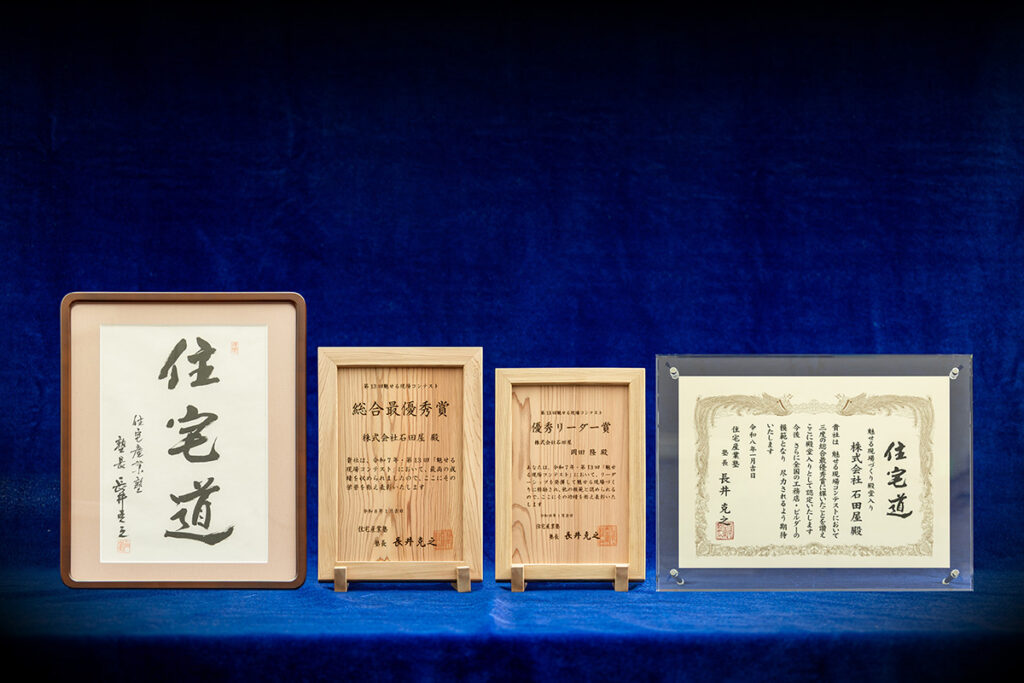 住宅道
住宅産業塾
塾長 長井克之
第13回魅せる現場コンテスト
総合最優秀賞
株式会社石田屋 殿
貴社は、令和7年・第13回「魅せる
現場コンテスト」において、最高の成
績を収められましたので、ここにその
栄誉を称え表彰いたします
令和8年1月吉日
住宅産業塾
塾長 長井克之
第13回魅せる現場コンテスト
優秀リーダー賞
株式会社石田屋
岡田 隆 殿
あなたは、令和7年・第13回「魅せ
る現場コンテスト」において、リーダ
ーシップを発揮して魅せる現場づく
りに格励され、他の模範と認められる
ので、ここにその功績を称え表彰いた
します
令和8年1月吉日
住宅産業塾
塾長 長井克之
住宅道
魅せる現場づくり殿堂入り
株式会社 石田屋 殿
貴社は 魅せる現場コンテストにおいて
三度の総合最優秀賞に輝いたことを讃え
ここに殿堂入りとして認定いたします
今後 さらに全国の工務店・ビルダーの
模範となり 尽力されるよう期待
いたします
令和八年一月吉日
住宅産業塾
塾長 長井 克之